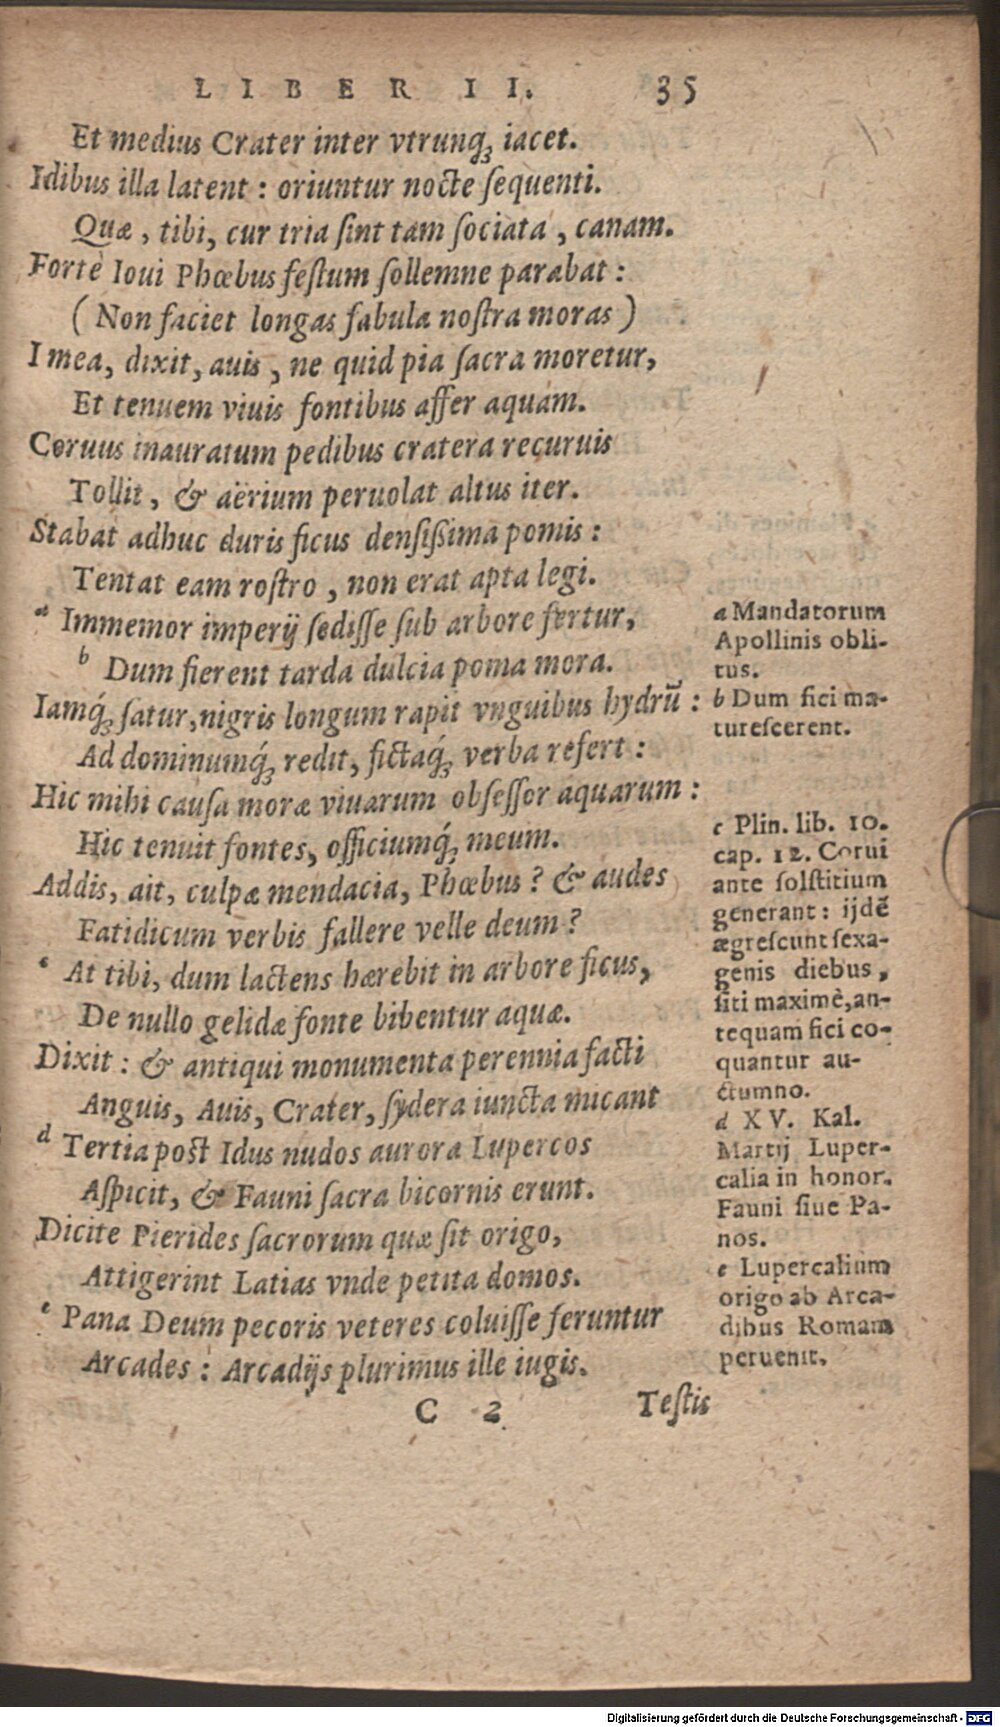 LIBER II. 35
Et medius Crater inter vtrunq́ꝫ iacet.
Idibus illa latent : oriuntur nocte ſequenti.
Quæ, tibi, cur tria ſint tam ſociata, canam.
Fortè Ioui Phœbus feſtum ſollemne parabat :
( Non faciet longas fabula noſtra moras )
I mea, dixit, auis, ne quid pia ſacra moretur,
Et tenuem viuis fontibus affer aquam.
Coruus inauratum pedibus cratera recuruis
Tollit, & aërium peruolat altus iter.
Stabat adhuc duris ficus denſiſſima pomis :
Tentat eam roſtro, non erat apta legi.
a Immemor imperij ſediſſe ſub arbore fertur,
b Dum fierent tarda dulcia poma mora.
Iamq́ꝫ ſatur, nigris longum rapit vnguibus hydrū :
Ad dominumq́ꝫ redit, fictaq́ꝫ verba refert :
Hic mihi cauſa moræ viuarum obſeſſor aquarum :
Hic tenuit fontes, officiumq́ꝫ meum.
Addis, ait, culpæ mendacia, Phœbus ? & audes
Fatidicum verbis fallere velle deum ?
c At tibi, dum lactens hærebit in arbore ficus,
De nullo gelidæ fonte bibentur aquæ.
Dixit : & antiqui monumenta perennia facti
Anguis, Auis, Crater, ſydera iuncta micant
d Tertia poſt Idus nudos aurora Lupercos
Aſpicit, & Fauni ſacra bicornis erunt.
Dicite Pierides ſacrorum quæ ſit origo,
Attigerint Latias vnde petita domos.
e Pana Deum pecoris veteres coluiſſe feruntur
Arcades : Arcadijs plurimus ille iugis.
C 2 Teſtis
a Mandatorum
Apollinis obli-
tus.
b Dum fici ma-
tureſcerent.
c Plin. lib. 10.
cap. 12. Corui
ante ſolſtitium
generant : ijdē
ægreſcunt ſexa-
genis diebus,
ſiti maximè, an-
tequam fici co-
quantur au-
ctumno.
d XV. Kal.
Martij Luper-
calia in honor.
Fauni ſiue Pa-
nos.
e Lupercalium
origo ab Arca-
dibus Romam
peruenit.
Digitalisierung gefördert durch die Deutsche Forschungsgemeinschaft - DFG